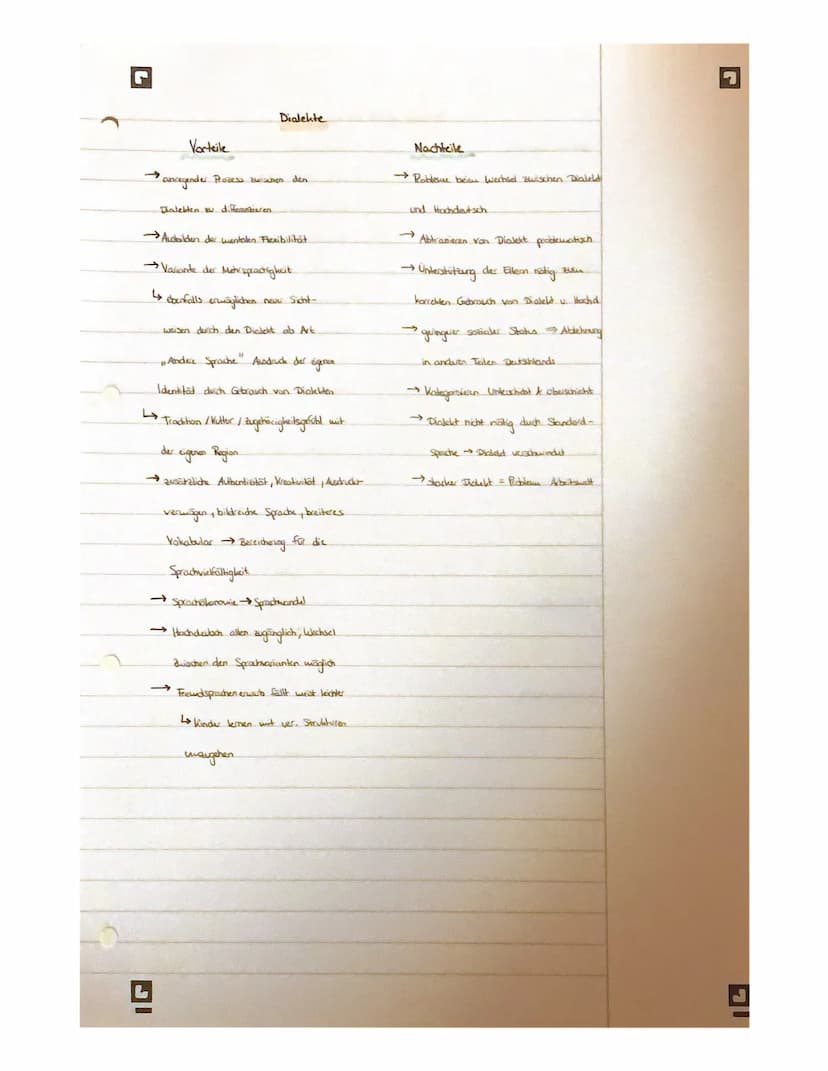 Dialekte
Vorteile
→ anregender Prozess zwischen den
Dialekten zu differenzieren
→ Ausbilden der mentalen Flexibilität
→ Variante der Mehrsprachigkeit
↳ ebenfalls ermöglichen neue Sicht-
weisen durch den Dialekt als Art
„Andere Sprache" Ausdruck der eigenen
Identität durch Gebrauch von Dialekten
↳ Tradition / Kultur / Zugehörigkeitsgefühl mit
der eigenen Region
→ zusätzliche Authentizität, Kreativität, Ausdrucks-
vermögen, bildreiche Sprache, breiteres
Vokabular → Bereicherung für die
Sprachvielfältigkeit
→ Sprachökonomie → Sprachwandel
→ Hochdeutsch allen zugänglich, Wechsel
zwischen den Sprachvarianten möglich
→ Fremdsprachenerwerb fällt meist leichter
↳ Kinder lernen mit ver. Strukturen
umzugehen
Nachteile
→ Probleme beim Wechsel zwischen Dialekt
und Hochdeutsch
→ Abtrainieren von Dialekt problematisch
→ Unterstützung der Eltern nötig zum
korrekten Gebrauch von Dialekt u. Hochd.
→ geringer sozialer Status ⇒ Ablehnung
in anderen Teilen Deutschlands
→ Kategorisieren Unterschicht & Oberschicht
→ Dialekt nicht nötig durch Standard-
sprache → Dialekt verschwindet
→ starker Dialekt = Problem Arbeitswelt